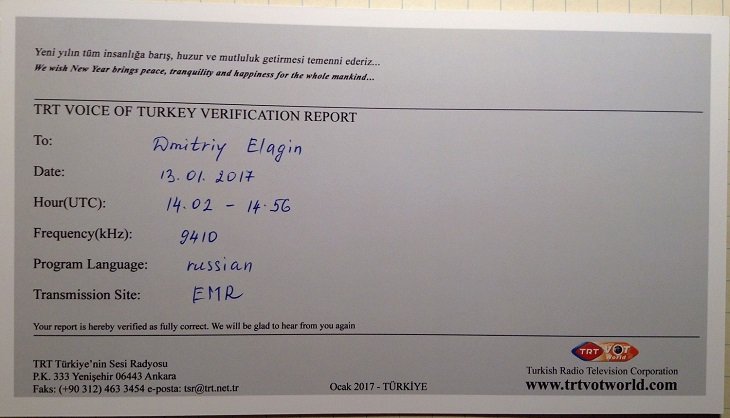 Yeni yılın tüm insanlığa barış, huzur ve mutluluk getirmesi temenni ederiz...
We wish New Year brings peace, tranquility and happiness for the whole mankind...
TRT VOICE OF TURKEY VERIFICATION REPORT
To: Dmitriy Elagin
Date: 13.01.2017
Hour(UTC): 14.02 - 14.56
Frequency(kHz): 9410
Program Language: russian
Transmission Site: EMR
Your report is hereby verified as fully correct. We will be glad to hear from you again
TRT VOT World
TRT Türkiye'nin Sesi Radyosu
P.K. 333 Yenişehir 06443 Ankara
Faks: (+90 312) 463 3454 e-posta: tsr@trt.net.tr
Ocak 2017 - TÜRKİYE
Turkish Radio Television Corporation
www.trtvotworld.com